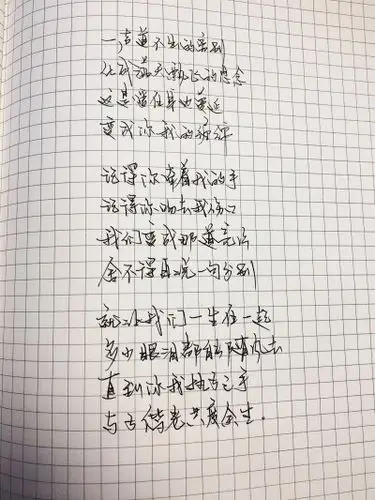 一声道不出的离别
化成满天翻飞的思念
这是
变成你我的
记得你牵着我的手
记得你吻去我伤口
我们变成那道完
舍不得再说一句分别
就让我们一生在一起
多少眼泪都能随风去
直到你我执子之手
与子偕老共度余生.